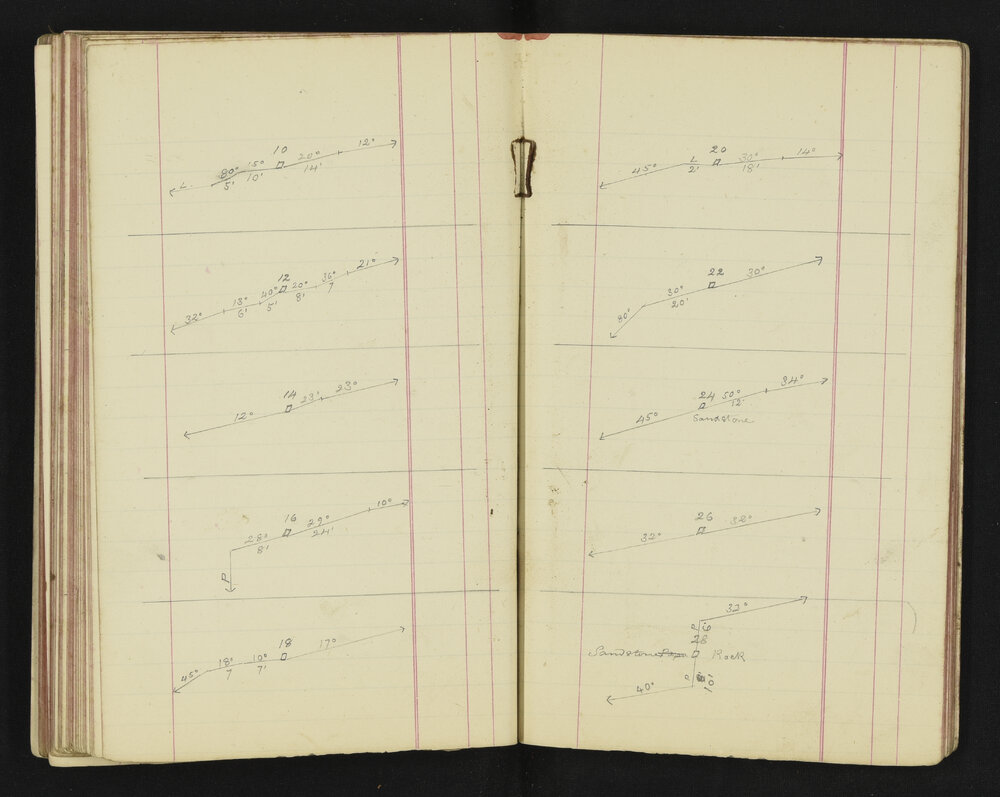 10
L 80° 15° 20° 12°
5' 10' 14'
12
32° 13° 40° 20° 36° 21°
6' 5' 8' 7
14
12° 23° 23°
16
28° 29° 10°
8' 24'
P
18
45° 18° 10° 17°
7 7'
20
45° L 30° 14°
2' 18'
22
80° 30° 30°
20'
24
45° 50° 34°
12'
Sandstone
26
32° 32°
32°
P 6
28
Sandstone Rock
P 10'
40°